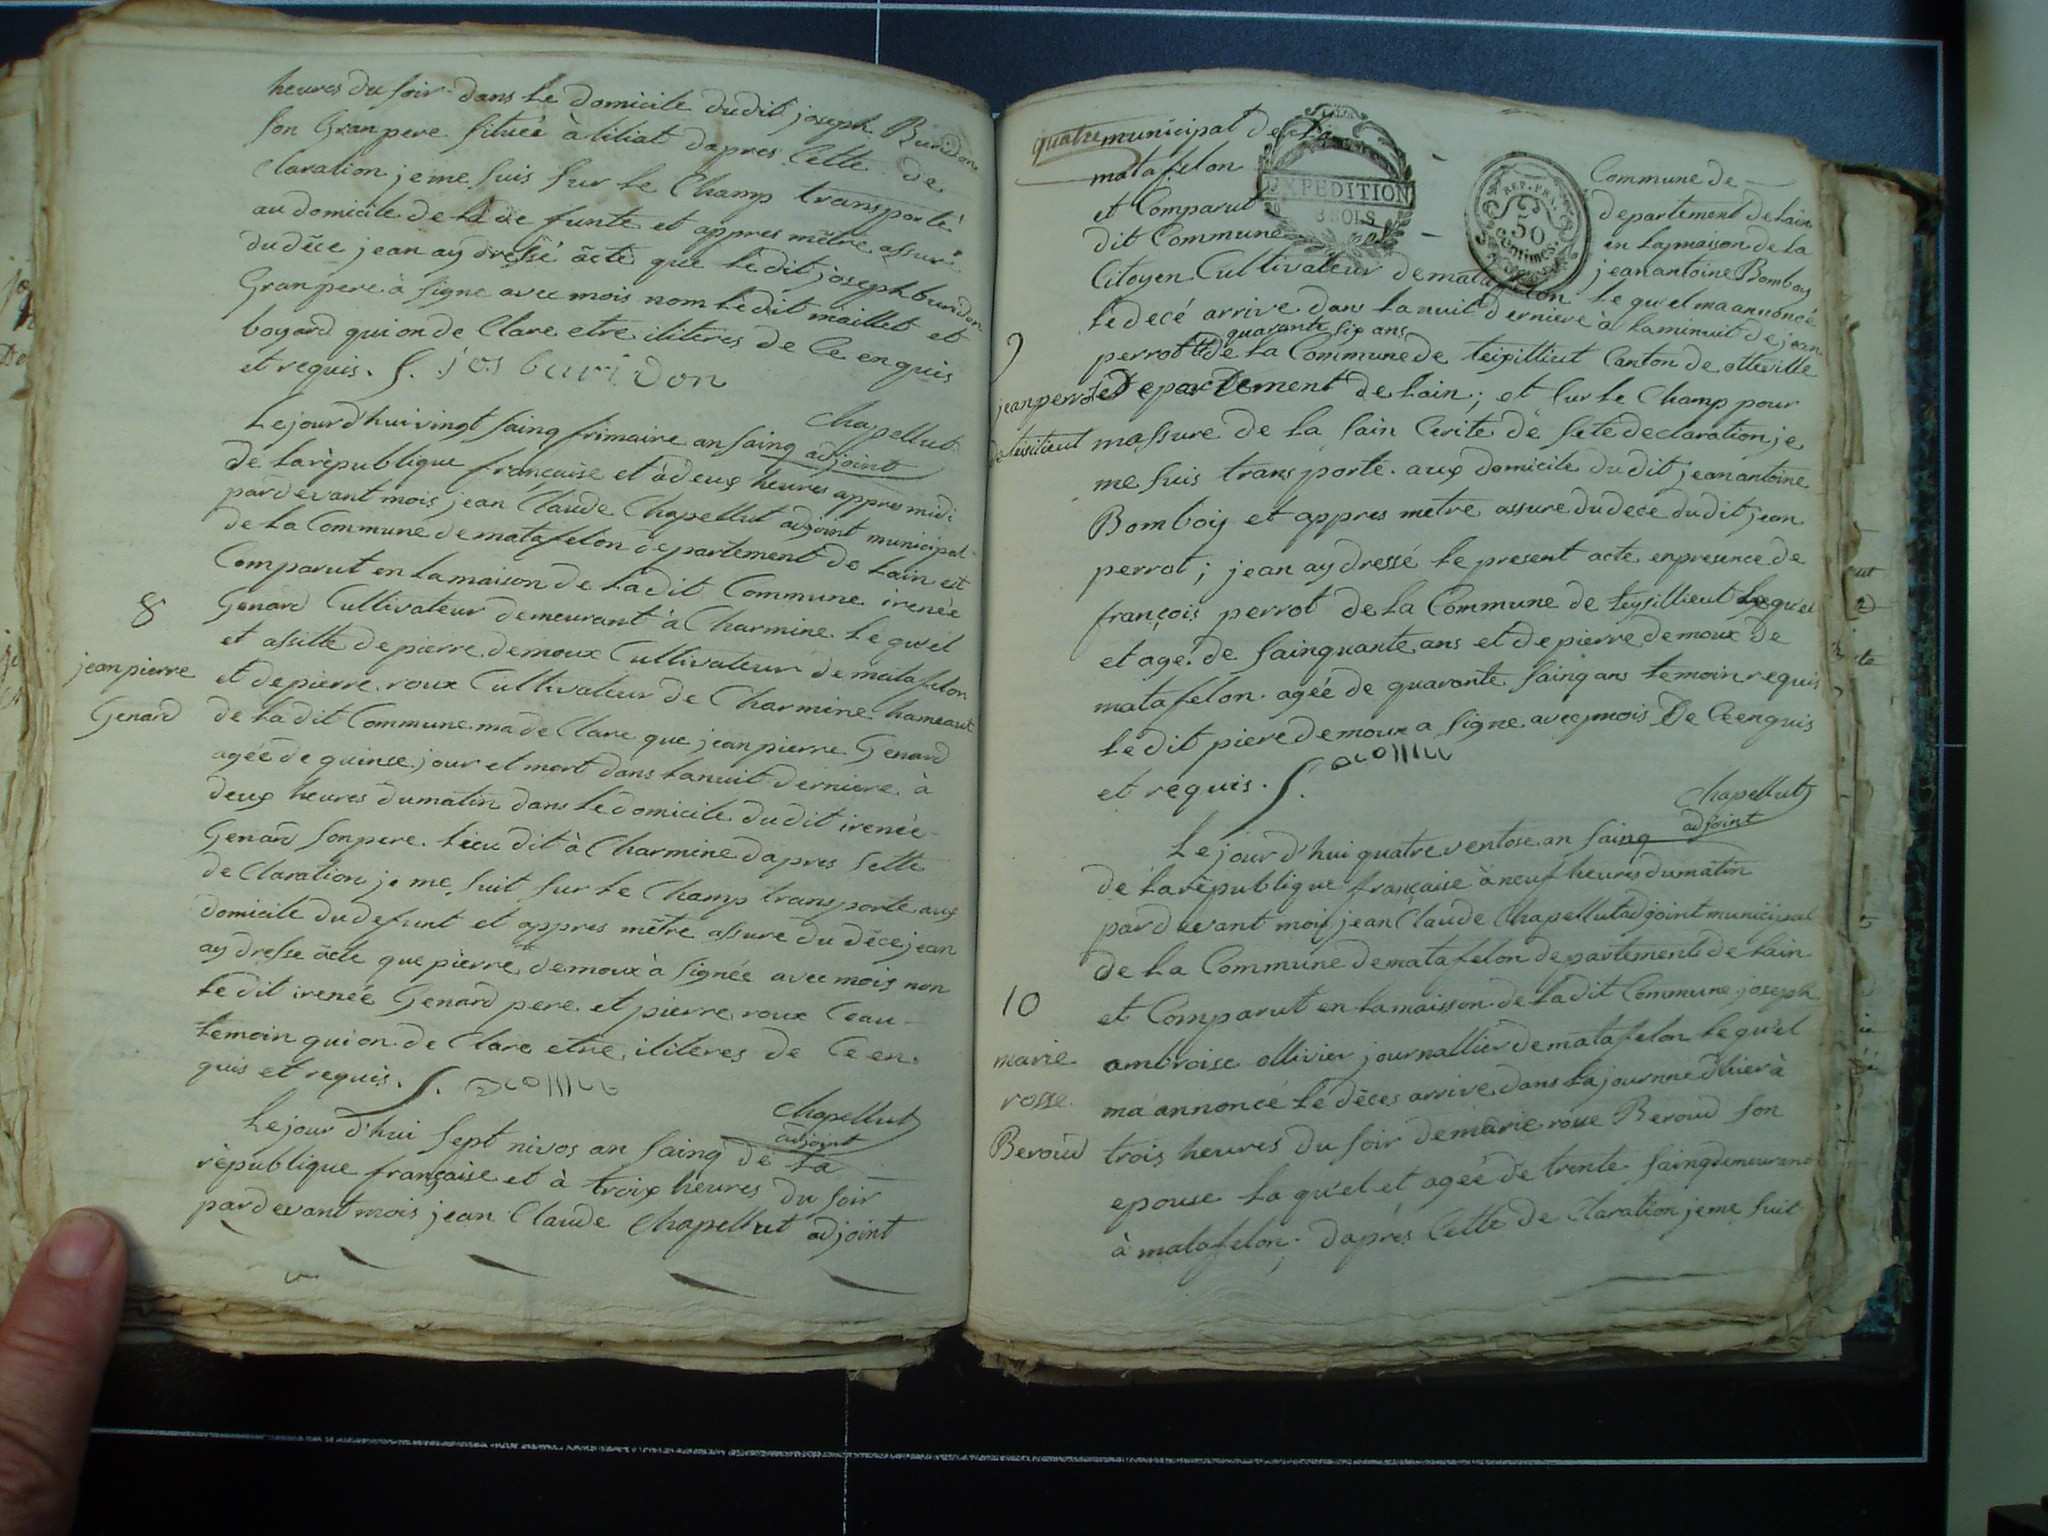 heures du soir dans le domicile dudit joseph Buridon
son Granpere situéé à siliat dapres Cette de
claration je me suis sur le Champ transporté
au domicile de la de funte et appres mêtre assuré
du dèce jean ay dressé ācte que le dit joseph buridon
Granpere à signe avec mois nom le dit maillet et
boyard qui on de Clare etre iliteres de Ce enquis
et requis. S. jos buridon
Chapellut
adjoint
Le jour d'hui vingt sainq frimaire an sainq
de la rèpublique française et à deux heures appres midi
par devant mois jean Claude Chapellut adjoint municipal
de la Commune de matafelon departement de Lain est
Comparut en la maison de la dit Commune irenée
8
Genard Cultivateur demeurant à Charmine le qu'el
et assitte de pierre demoux Cultivateur de matafelon
jean pierre
Genard
et de pierre roux Cultivateur de Charmine hameaut
de la dit Commune ma de Clare que jean pierre Genard
agée de quinse jour et mort dans la nuit derniere à
deux heures du matin dans le domicile dudit irenée
Genard son pere. lieu dit à Charmine dapres Sette
de Claration je me suit sur le Champ transporte aux
domicile du defunt et appres mêtre assure du dèce jean
ay dresse ācte que pierre demoux à signée avec mois non
le dit irenée Genard pere et pierre roux Ceau
temoin qui on de Clare etre iliteres de Ce en
quis et requis. S.
Chapellut
adjoint
Le jour d'hui sept nivos an sainq de la
rèpublique française et à troix heures du soir
par devant mois jean Claude Chapellut adjoint
quatre municipal de la Commune de
matafelon departement de Lain
EXPEDITION
3 SOLS
REP. FRA.
50
centimes.
et Comparut en la maison de la
dit Commune jean antoine Bomboy
Citoyen Cultivateur de matafelon le qu'el ma annoncé
le decé arrive dans la nuit derniere à la minuit de jean
quarante six ans
perrot de la Commune de teisillieut Canton de otteville
9
jean perrot
de teisilieut
Departement de Lain; et sur le Champ pour
massure de la sain Cerité de Seté declaration je
me suis transporte. aux domicile du dit jean antoine
Bomboy et appres metre assure du dece du dit jean
perrot; jean ay dressé le present acte en presence de
françois perrot de la Commune de teysillieut lequel
et agé de sainquante ans et de pierre demoux de
matafelon. agée de quarante sainq ans temoin requis
le dit piere demoux a signe avec mois De Ce enquis
et requis. S.
Chapellut
adjoint
Le jour d'hui quatre ventose an sainq
de la rèpublique française à neuf heures du matin
par devant mois jean Claude Chapellut adjoint municipal
de la Commune de matafelon departement de Lain
10
et Comparut en la maisson de la dit Commune joseph
marie
rosse
Beroud
ambroise ollivier journallier de matafelon le qu'el
ma annoncé le dèces arrive dans la journne d'hier à
trois heures du soir de marie rose Beroud son
epouse la qu'el et agée de trente sainq demeurand
à matafelon; dapres Cette de Claration je me suit